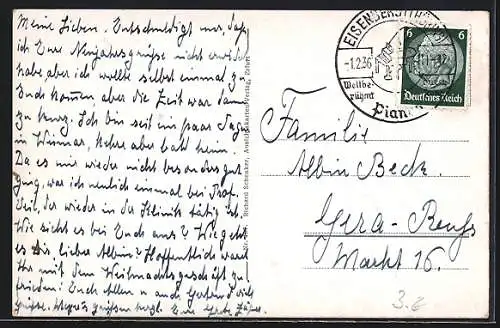 Meine Lieben. Entschuldigt nur, daß
ich Eure Neujahrsgrüße nicht erwidert
habe aber ich wollte selbst einmal zu
Euch kommen aber die Zeit war dann
zu kurz. Ich bin seit ein paar Tagen
in Weimar, kehre aber bald heim.
Da es mir wieder nicht besonders gut
ging, war ich neulich einmal bei Prof.
Veil, der wieder in der Klinik tätig ist.
Wie sieht es bei Euch aus? Wie geht
es Dir, lieber Albin? Hoffentlich wart
Ihr mit dem Weihnachtsgeschäft zu
frieden! Euch allen u. auch Gertrud viele
Grüße.
Richard Scheuker, Ansichtskarten-Verlag,
EISENBERG (THÜR)
-1.2.36
Weltbe-
rühmt
Pian
6 6
Deutsches Reich
Familie
Albin Beck.
Gera-Reuß
Markt 16.
3.E